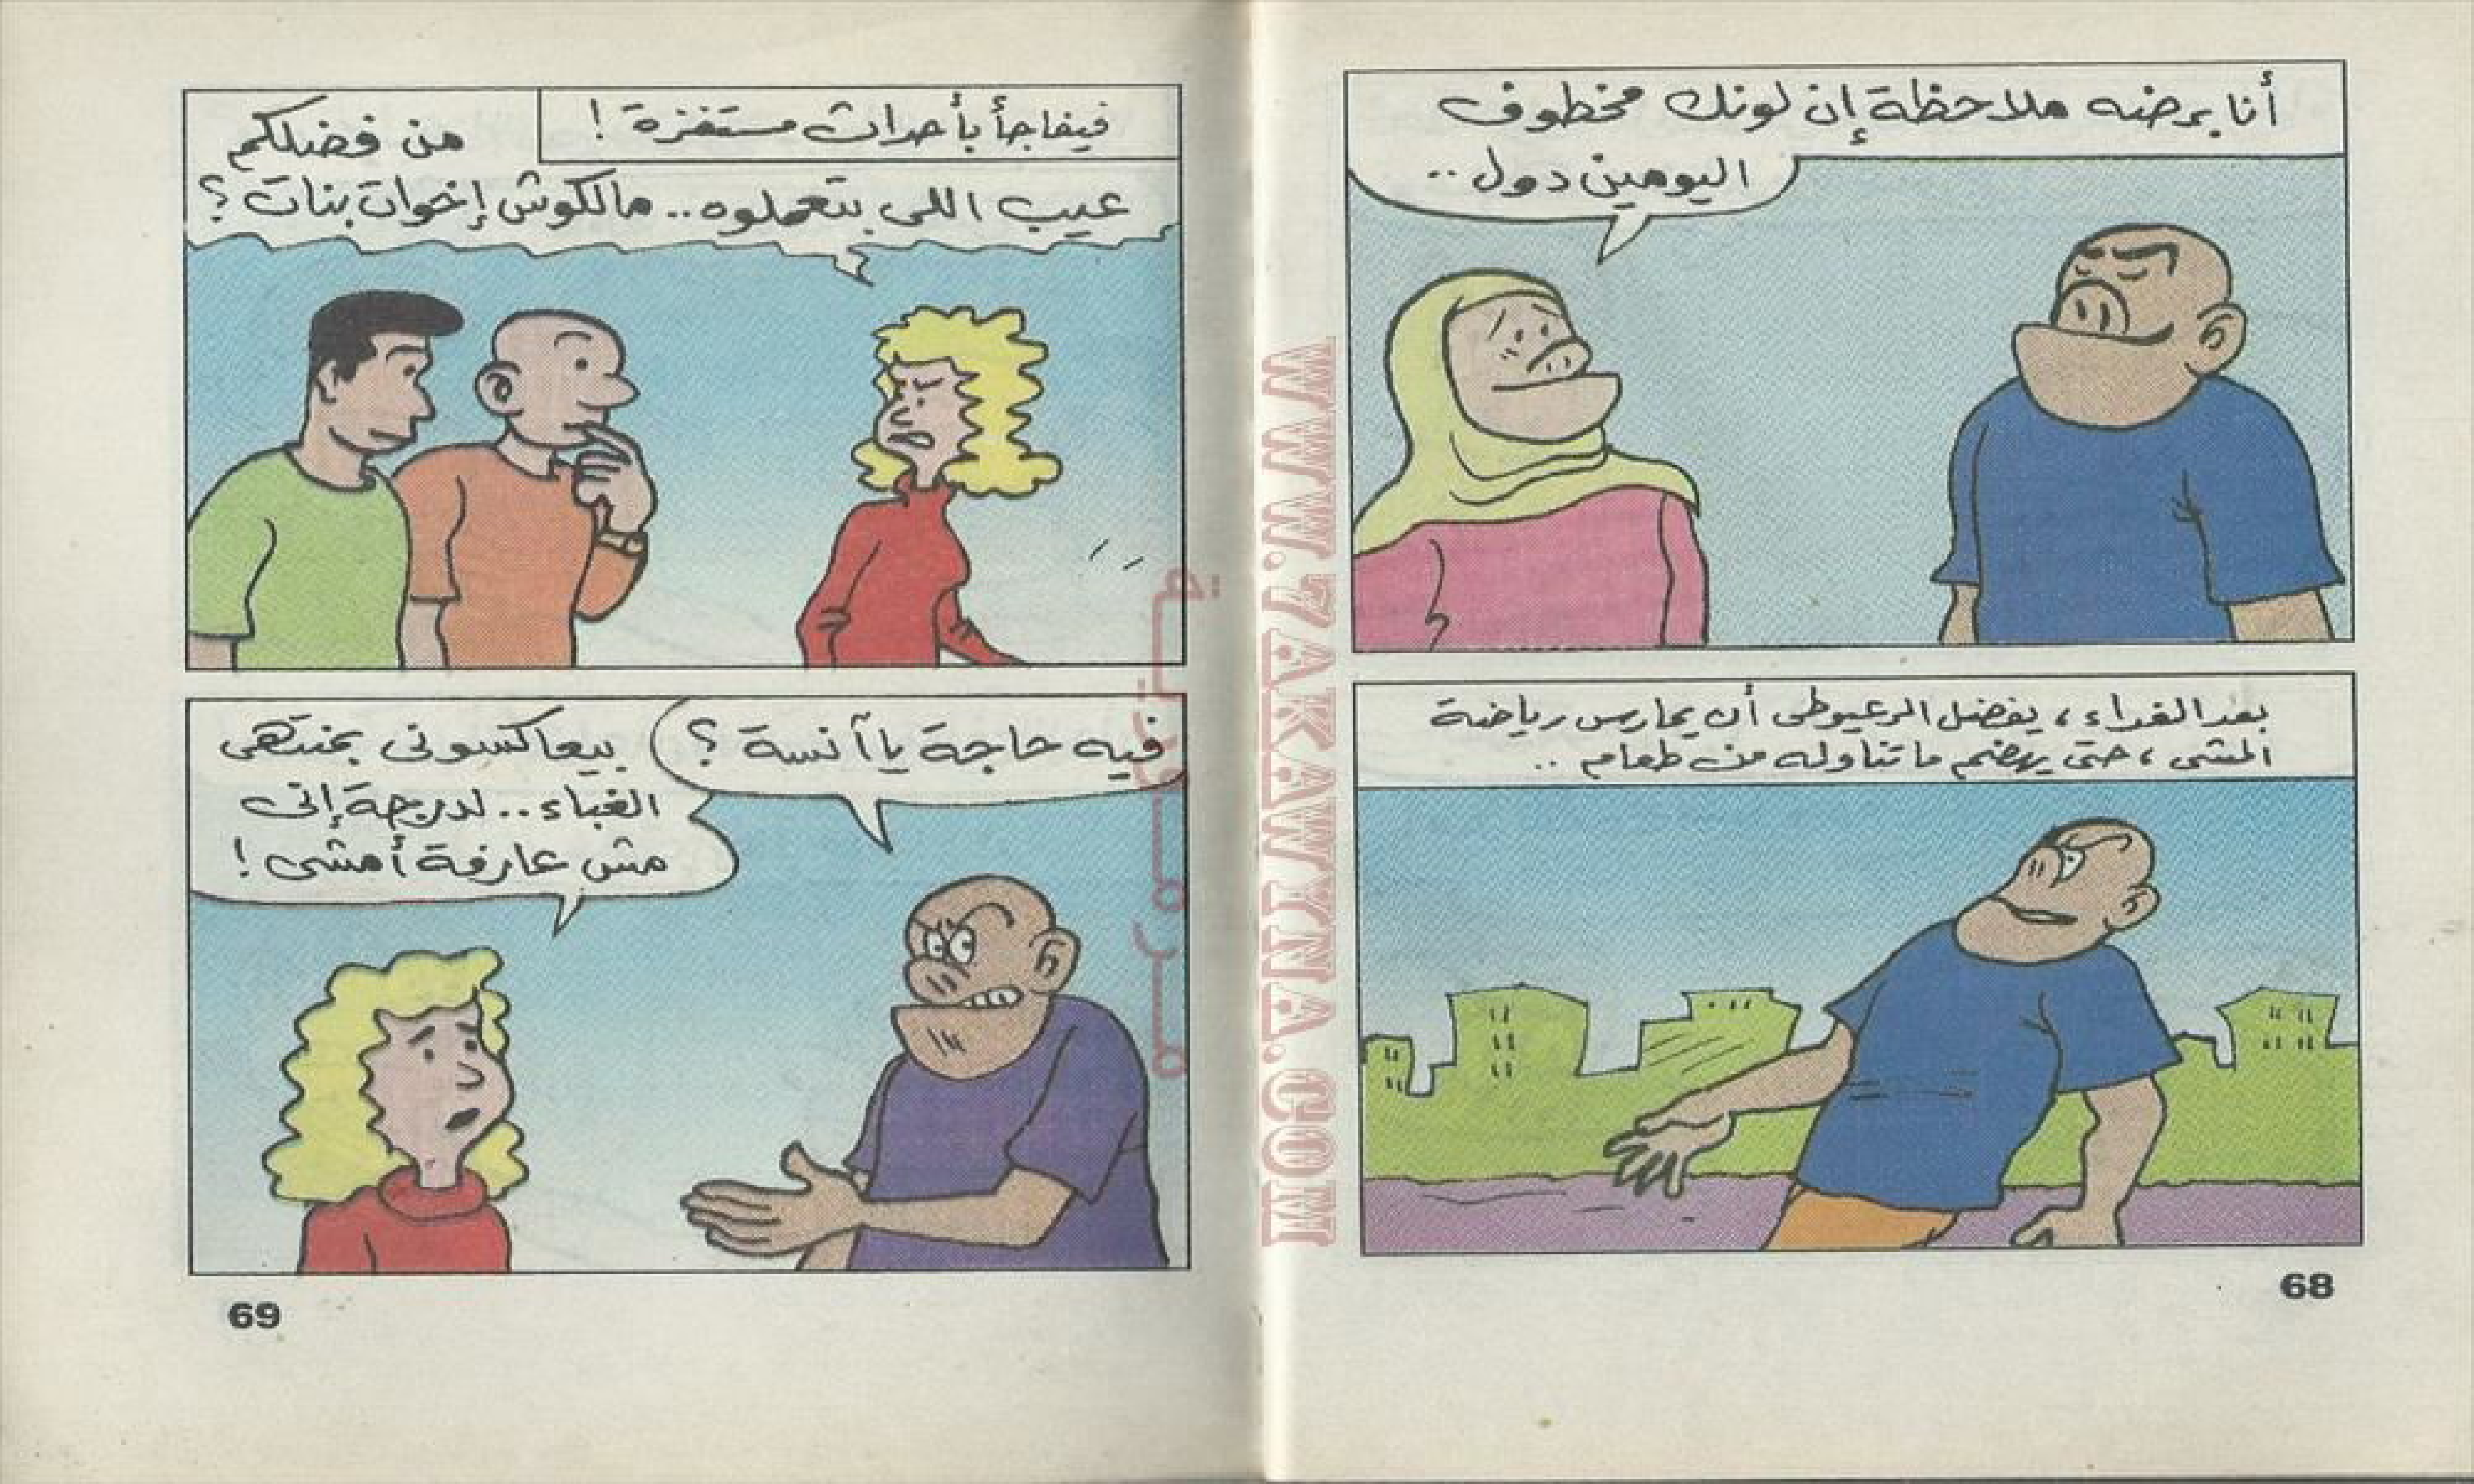 أنا برضه ملاحظة إن لونك مخطوف
اليومين دول ..
بعد الغداء، يفضل الرعيوطى أن يمارس رياضة
المشى، حتى يهضم ما تناوله من طعام ..
68
فيفاجأ بأحداث مستفزة !
من فضلكم
عيب اللى بتعملوه .. مالكوش إخوات بنات ؟
فيه حاجة يا آنسة ؟
بيعاكسونى بمنتهى
الغباء .. لدرجة إنى
مش عارفة أمشى !
69
WWW.7AKAWYNA.COM